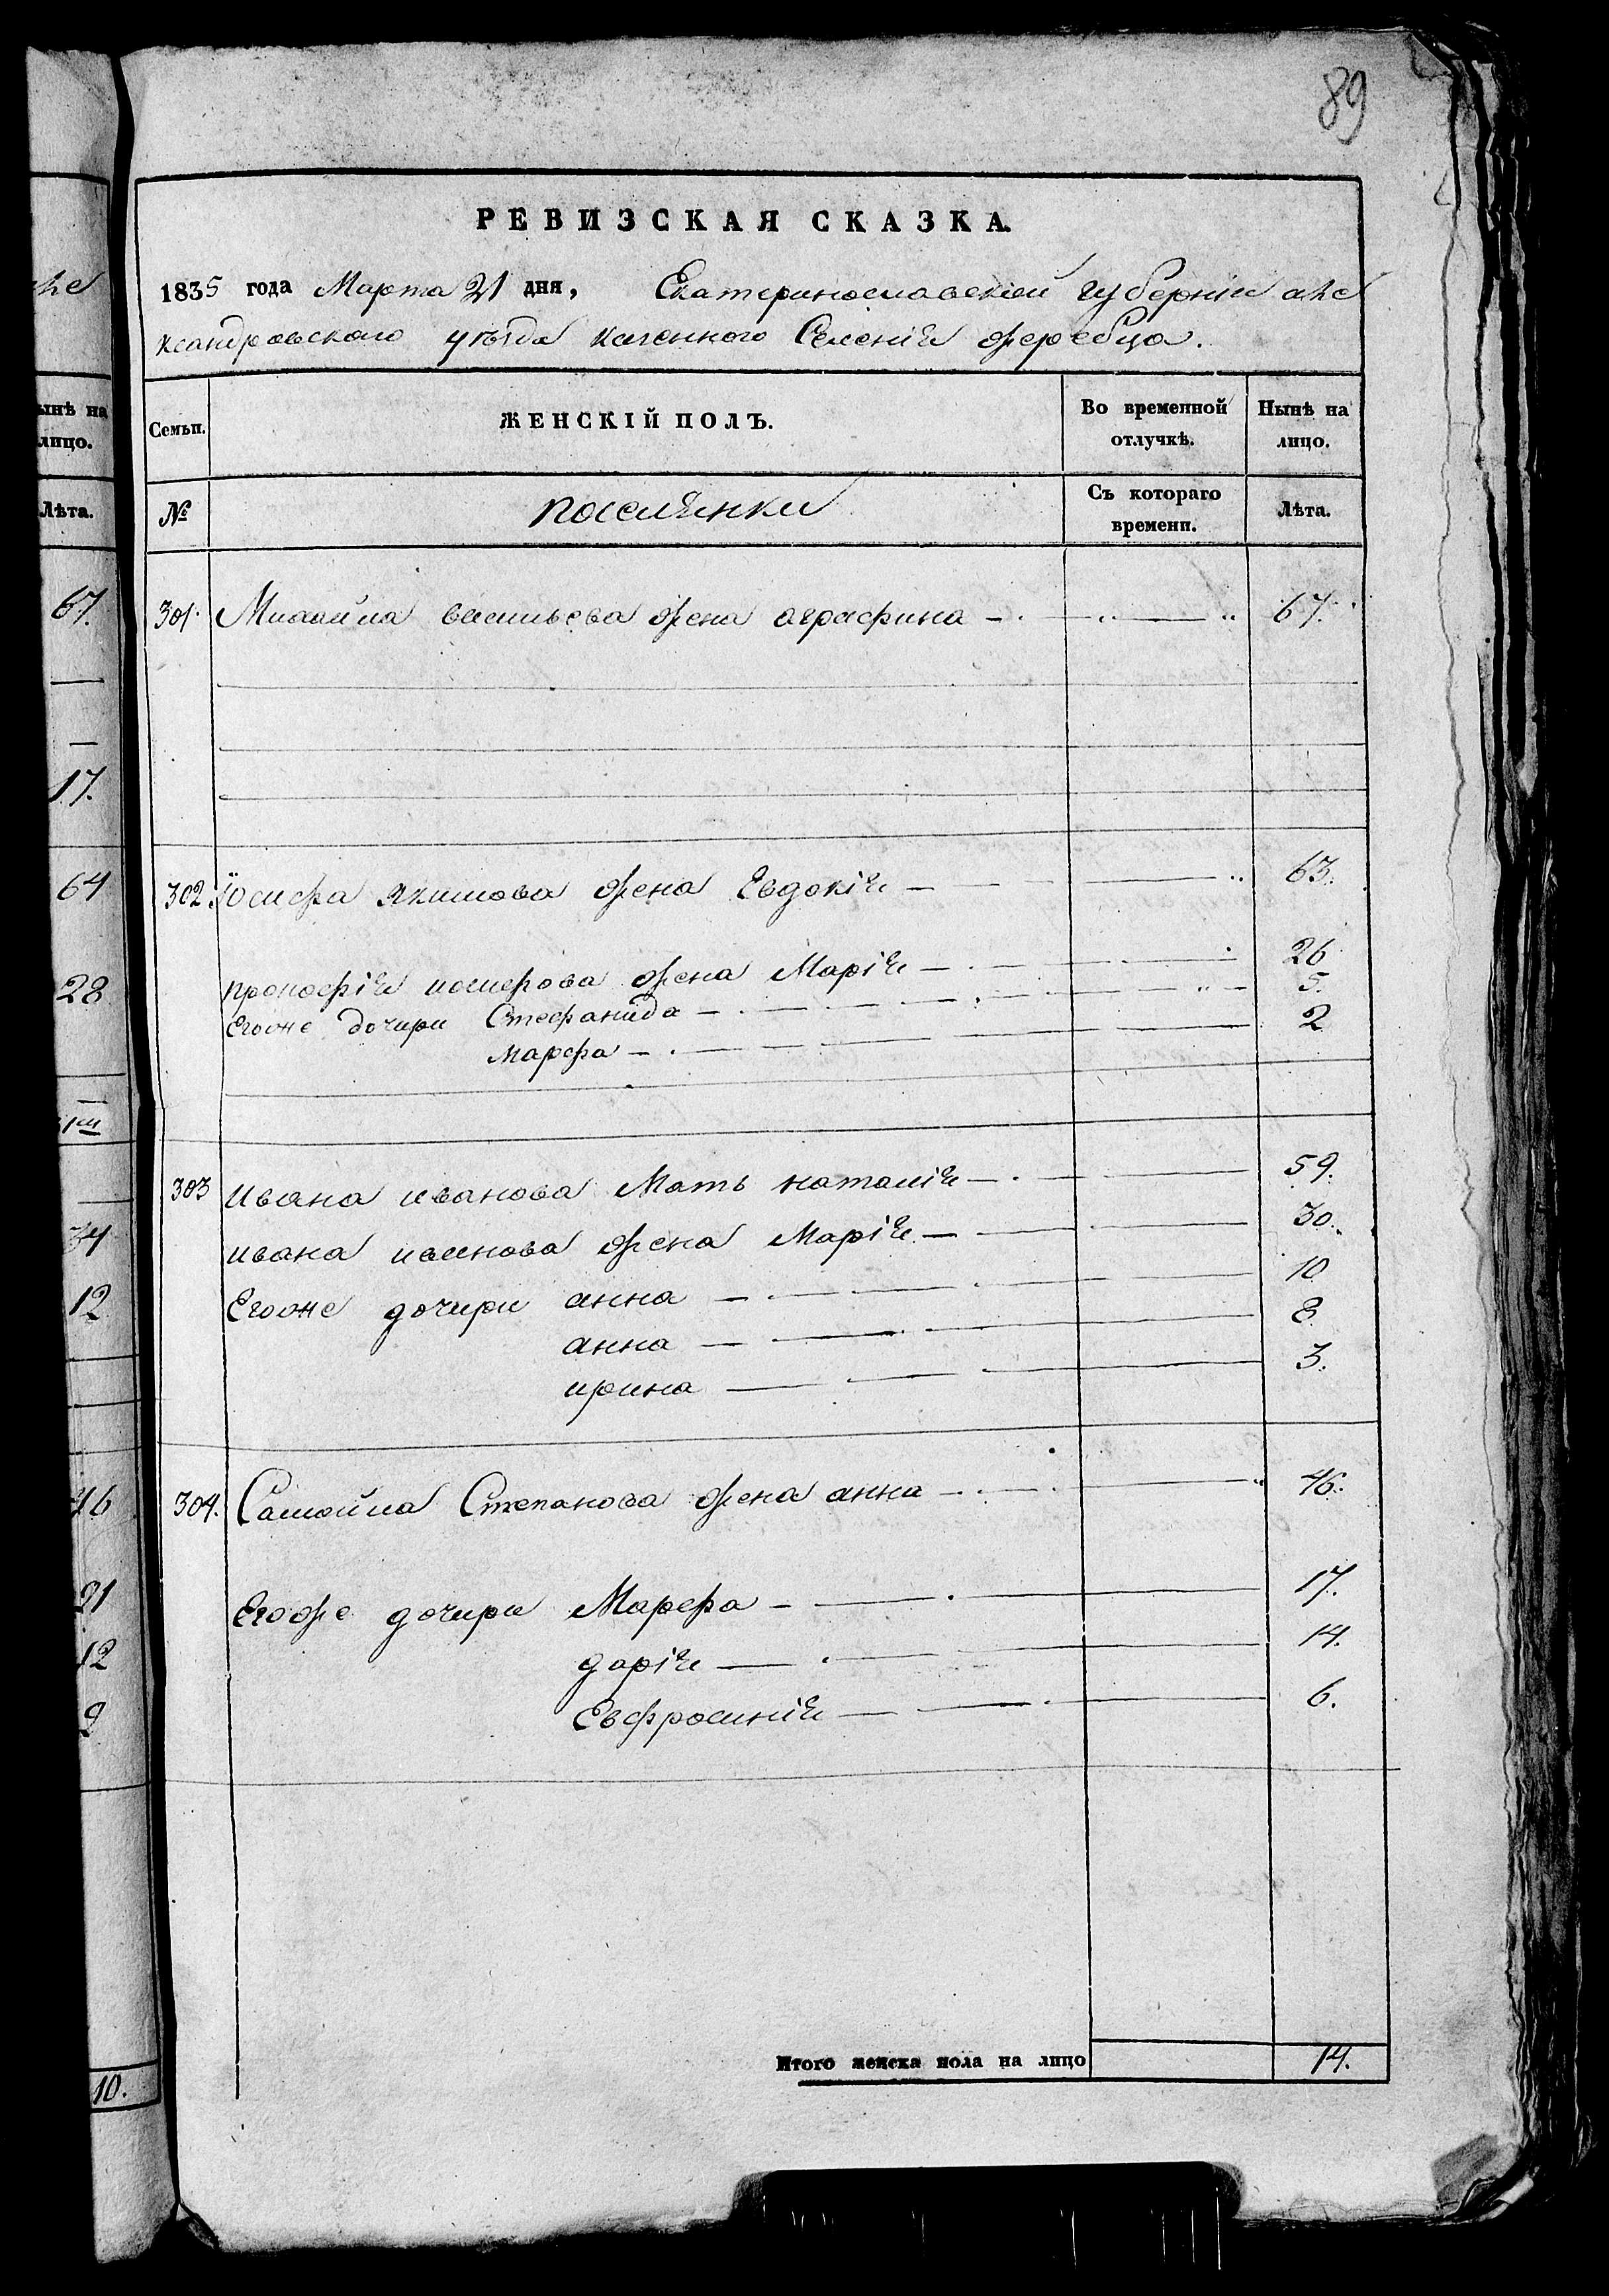 89
РЕВИЗСКАЯ СКАЗКА.
1835 года Марта 21 дня, Екатеринославской губерніи але
ксандровскаго уѣзда казенного Селенія жеребца.
Семьи. ЖЕНСКІЙ ПОЛЪ. Во временной отлучкѣ. Нынѣ на лицо.
№ поселянки Съ котораго времени. Лѣта.
301. Михайла васильева жена аграфина 67.
302. Іосифа Якимова жена Евдокія 63.
прокофія жена Марія 26
Егоже дочири Стефанида 5.
Марфа 2
303 ивана иванова Мать наталія 59.
ивана иванова жена Марія 30.
Егоже дочири анна 10
анна 8
ирина 3.
304. Самойла Степанова жена анна 46.
Егоже дочири Марфа 17.
дарія 14.
Евфросинія 6.
Итого женска пола на лицо 14.
ынѣ на
лицо.
Лѣта.
67.
17.
64
28
34
12
46
21
12
9
10.